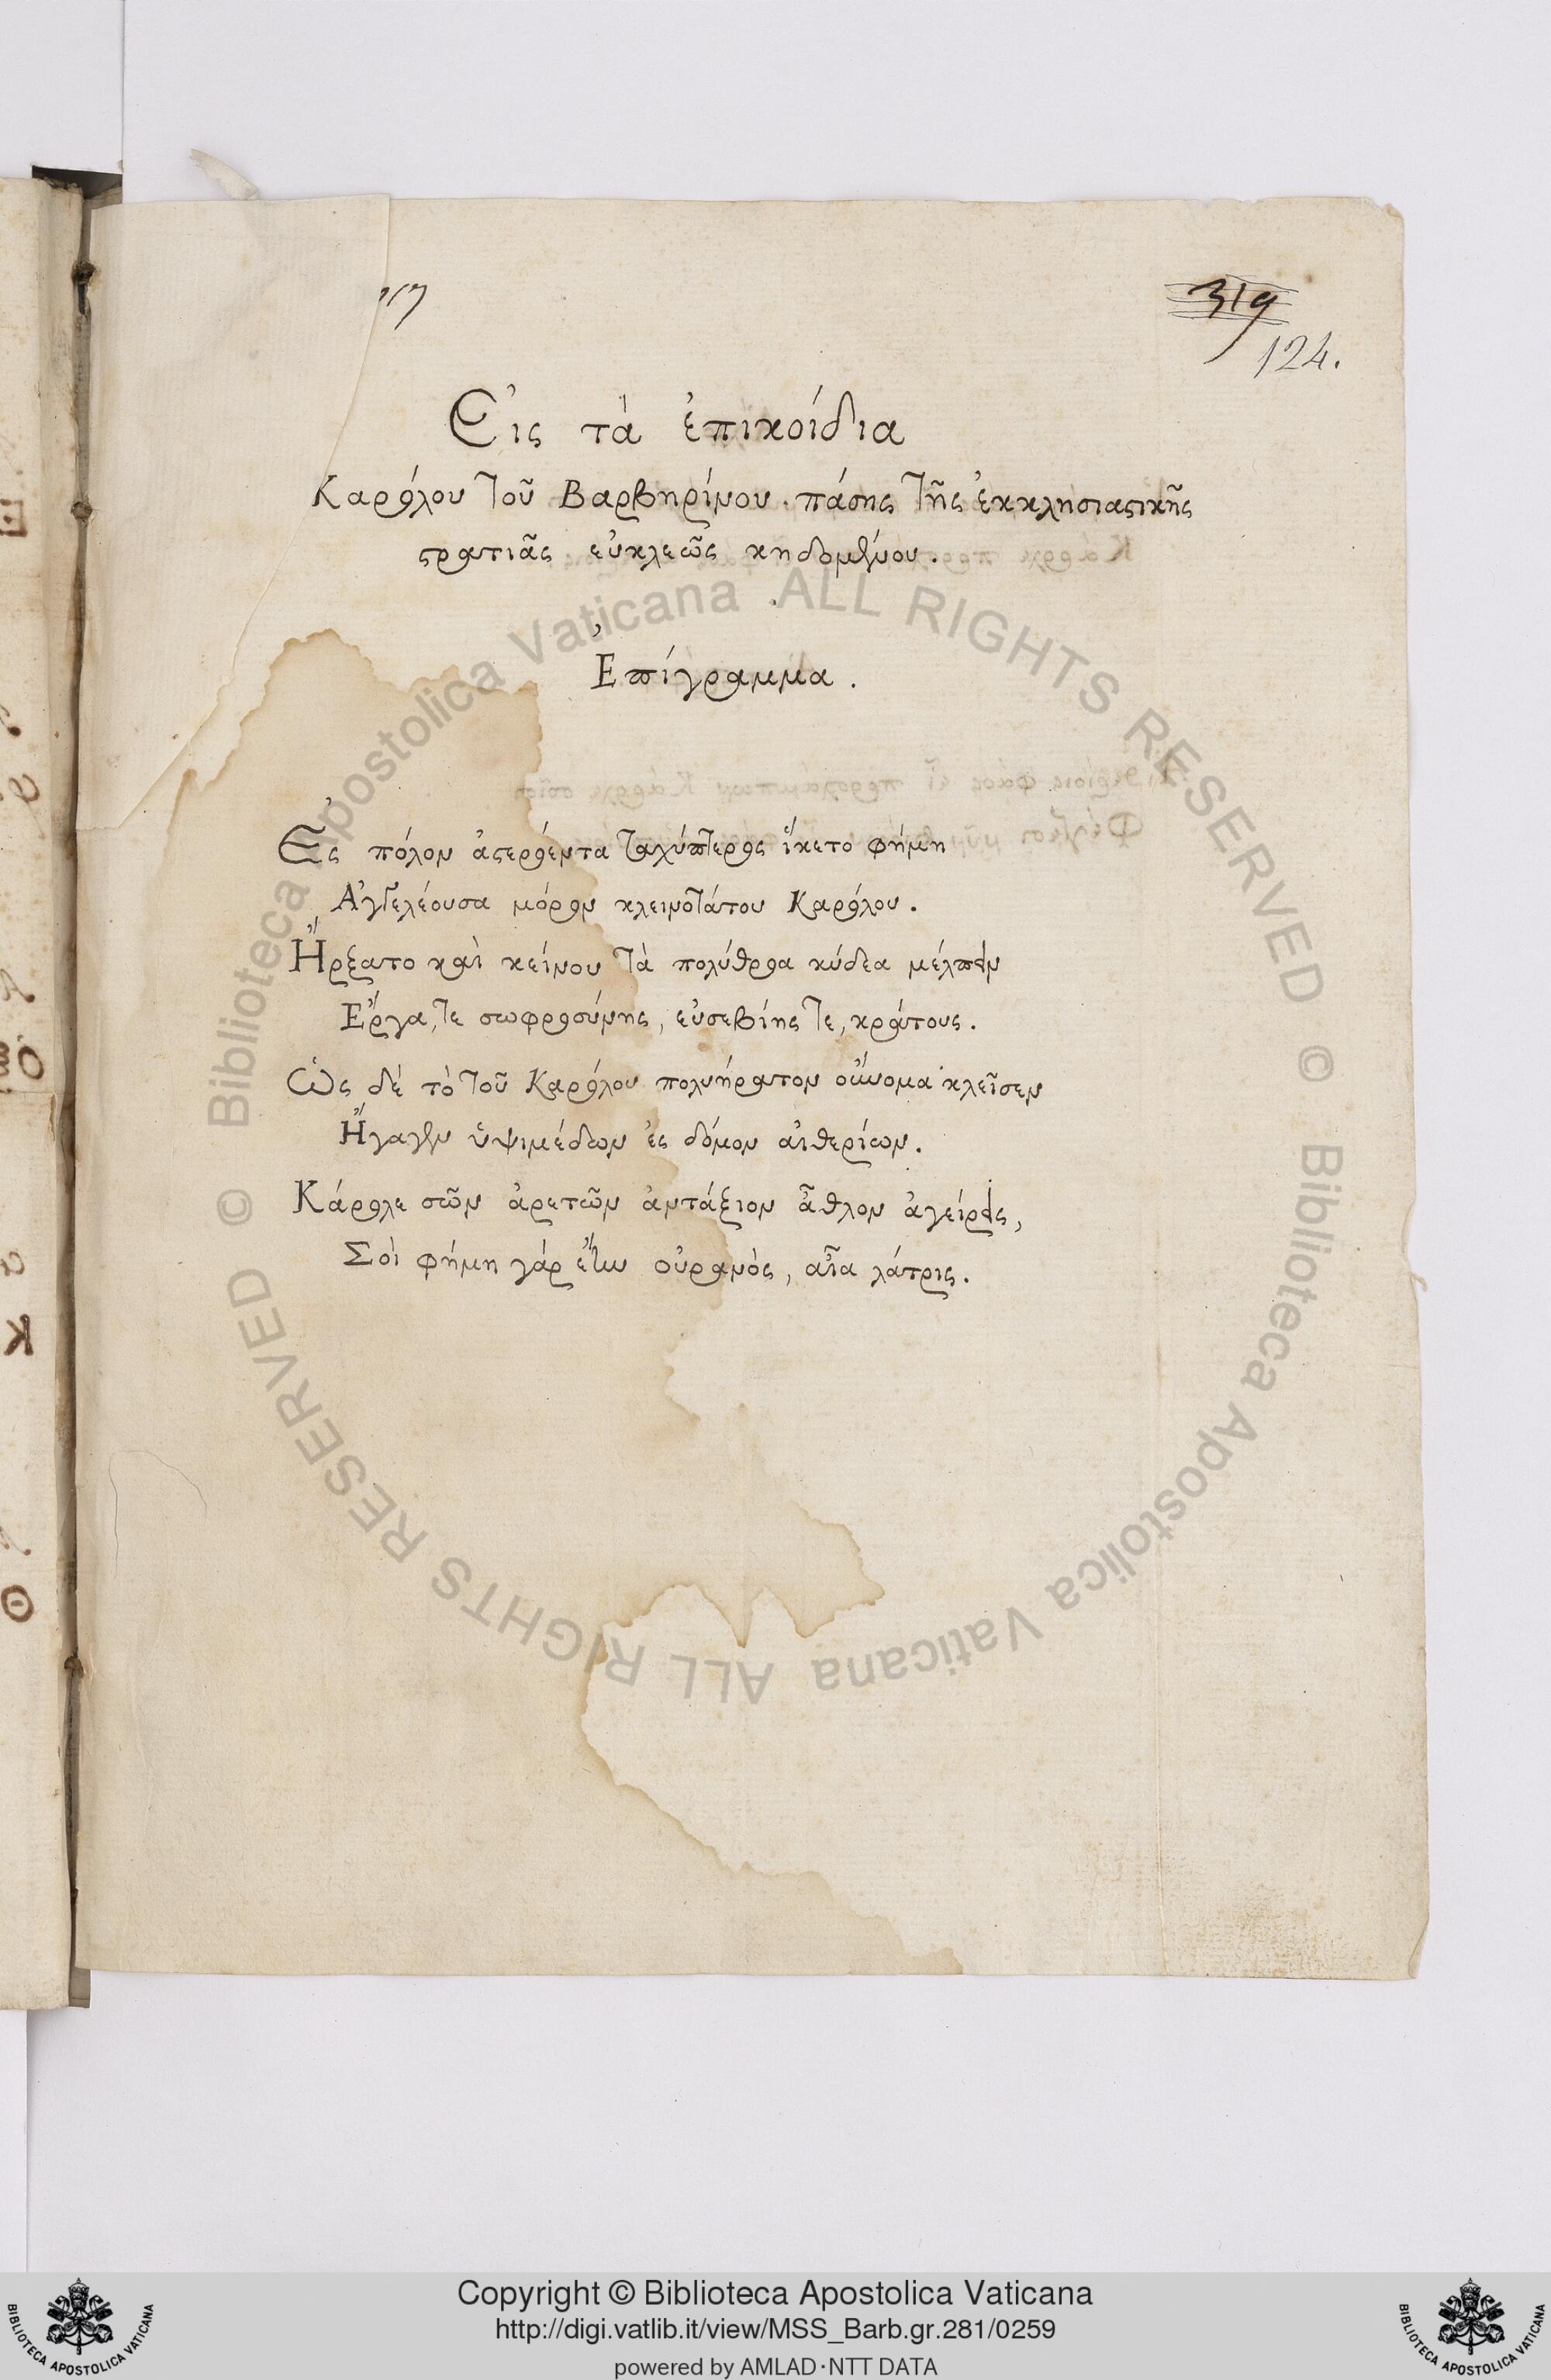 319
124.
Εἰς τὰ ἐπικοίδια
Καρόλου τοῦ Βαρβηρίνου πάσης τῆς ἐκκλησιαςικῆς
ςρατιᾶς εὐκλεῶς κηδομένου.
Ἐπίγραμμα.
Ἐς πόλον ἀςερόεντα ταχύπτερος ἵκετο φήμη
Ἀγγελέουσα μόρον κλεινοτάτου Καρόλου.
Ἤρξατο καὶ κείνου τὰ πολύθροα κύδεα μέλπειν
Ἔργα, τε σωφροσύνης, εὐσεβίης τε, κράτους.
Ὡς δέ τὸ τοῦ Καρόλου πολυήρατον οὔνομα κλεῖσεν
Ἤγαγεν ὑψιμέδων ἐς δόμον αἰθερίων.
Κάρολε σῶν ἀρετῶν ἀντάξιον ἆθλον ἀγείρεις,
Σοὶ φήμη γάρ ἔην οὐρανὸς, αἶα λάτρις.
Copyright © Biblioteca Apostolica Vaticana
http://digi.vatlib.it/view/MSS_Barb.gr.281/0259
powered by AMLAD·NTT DATA
BIBLIOTECA APOSTOLICA VATICANA
BIBLIOTECA APOSTOLICA VATICANA
© Biblioteca Apostolica Vaticana ALL RIGHTS RESERVED
© Biblioteca Apostolica Vaticana ALL RIGHTS RESERVED